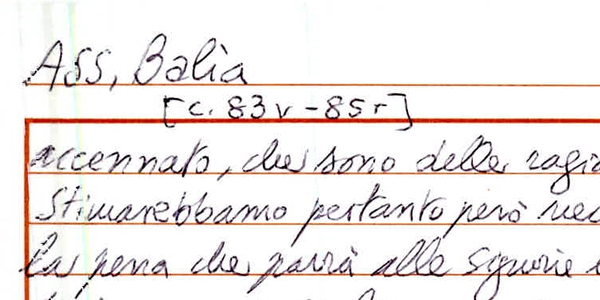 Ass, Balìa
[c. 83v - 85r]
accennato, che sono delle ragio
Stimarebbamo pertanto però nec
la pena che parrà alle signorie